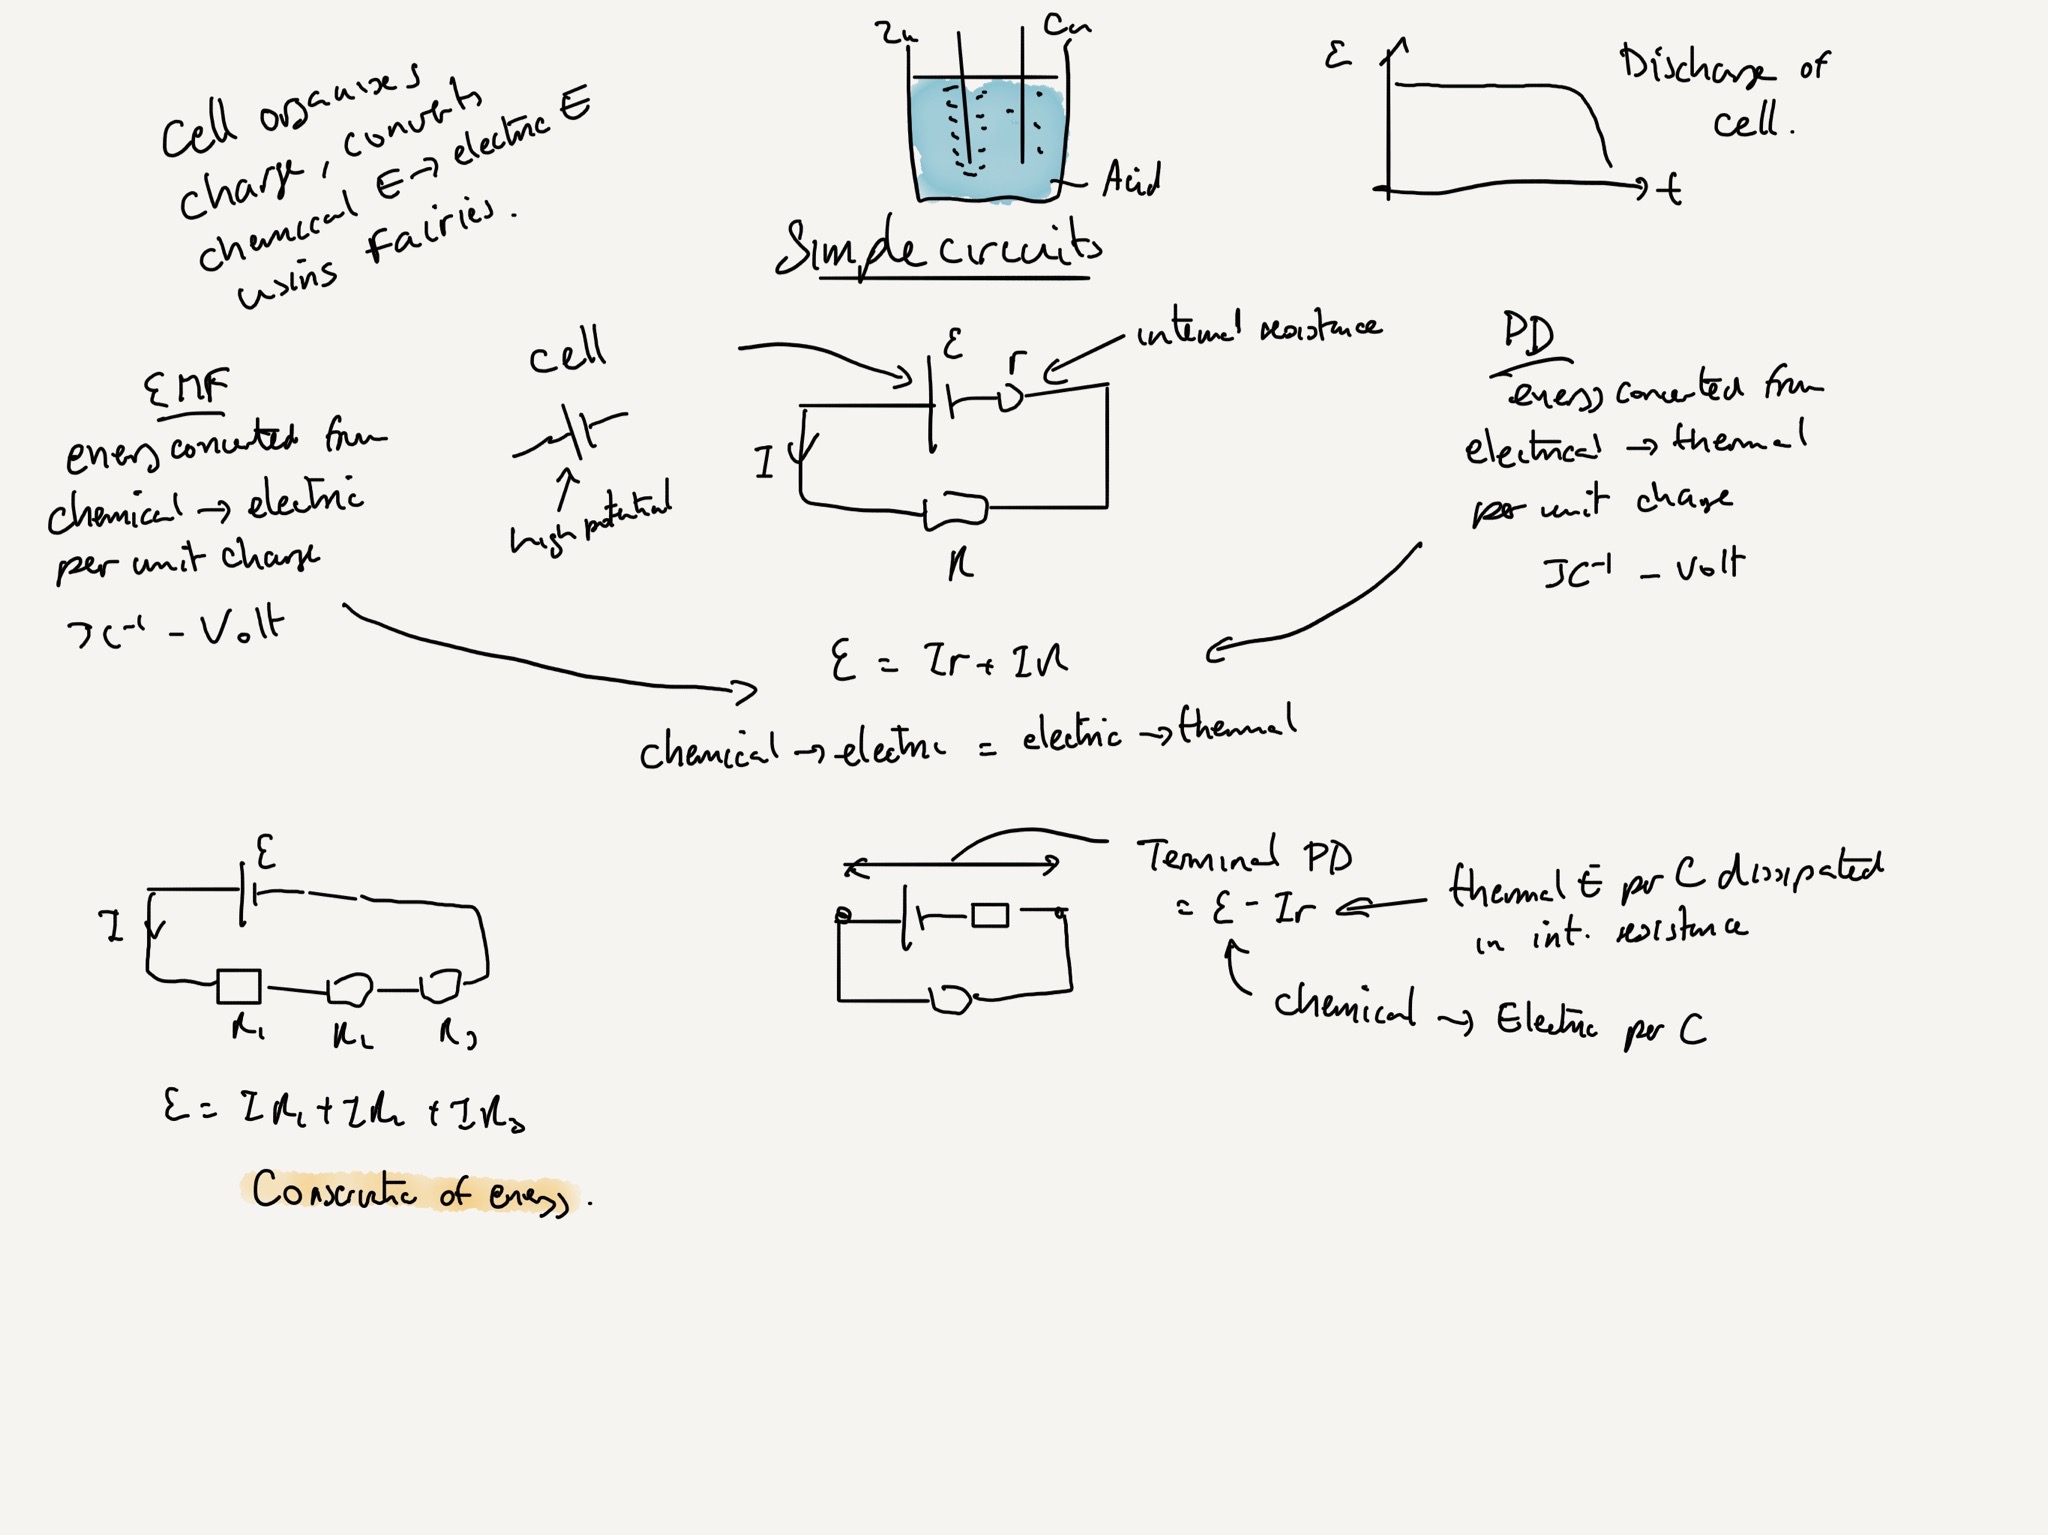 Zn
Cu
Acid
Cell organises
charge, converts
chemical E → electric E
using Fairies.
ε
t
Discharge of
cell.
Simple circuits
EMF
energy converted from
chemical → electric
per unit charge
JC⁻¹ - Volt
cell
high potential
ε
r
internal resistance
I
R
PD
energy converted from
electrical → thermal
per unit charge
JC⁻¹ - Volt
ε = Ir + IR
chemical → electric = electric → thermal
ε
I
R₁ R₂ R₃
ε = IR₁ + IR₂ + IR₃
Conservatio of energy.
Terminal PD
= ε - Ir
thermal E per C dissipated
in int. resistance
chemical → Electric per C